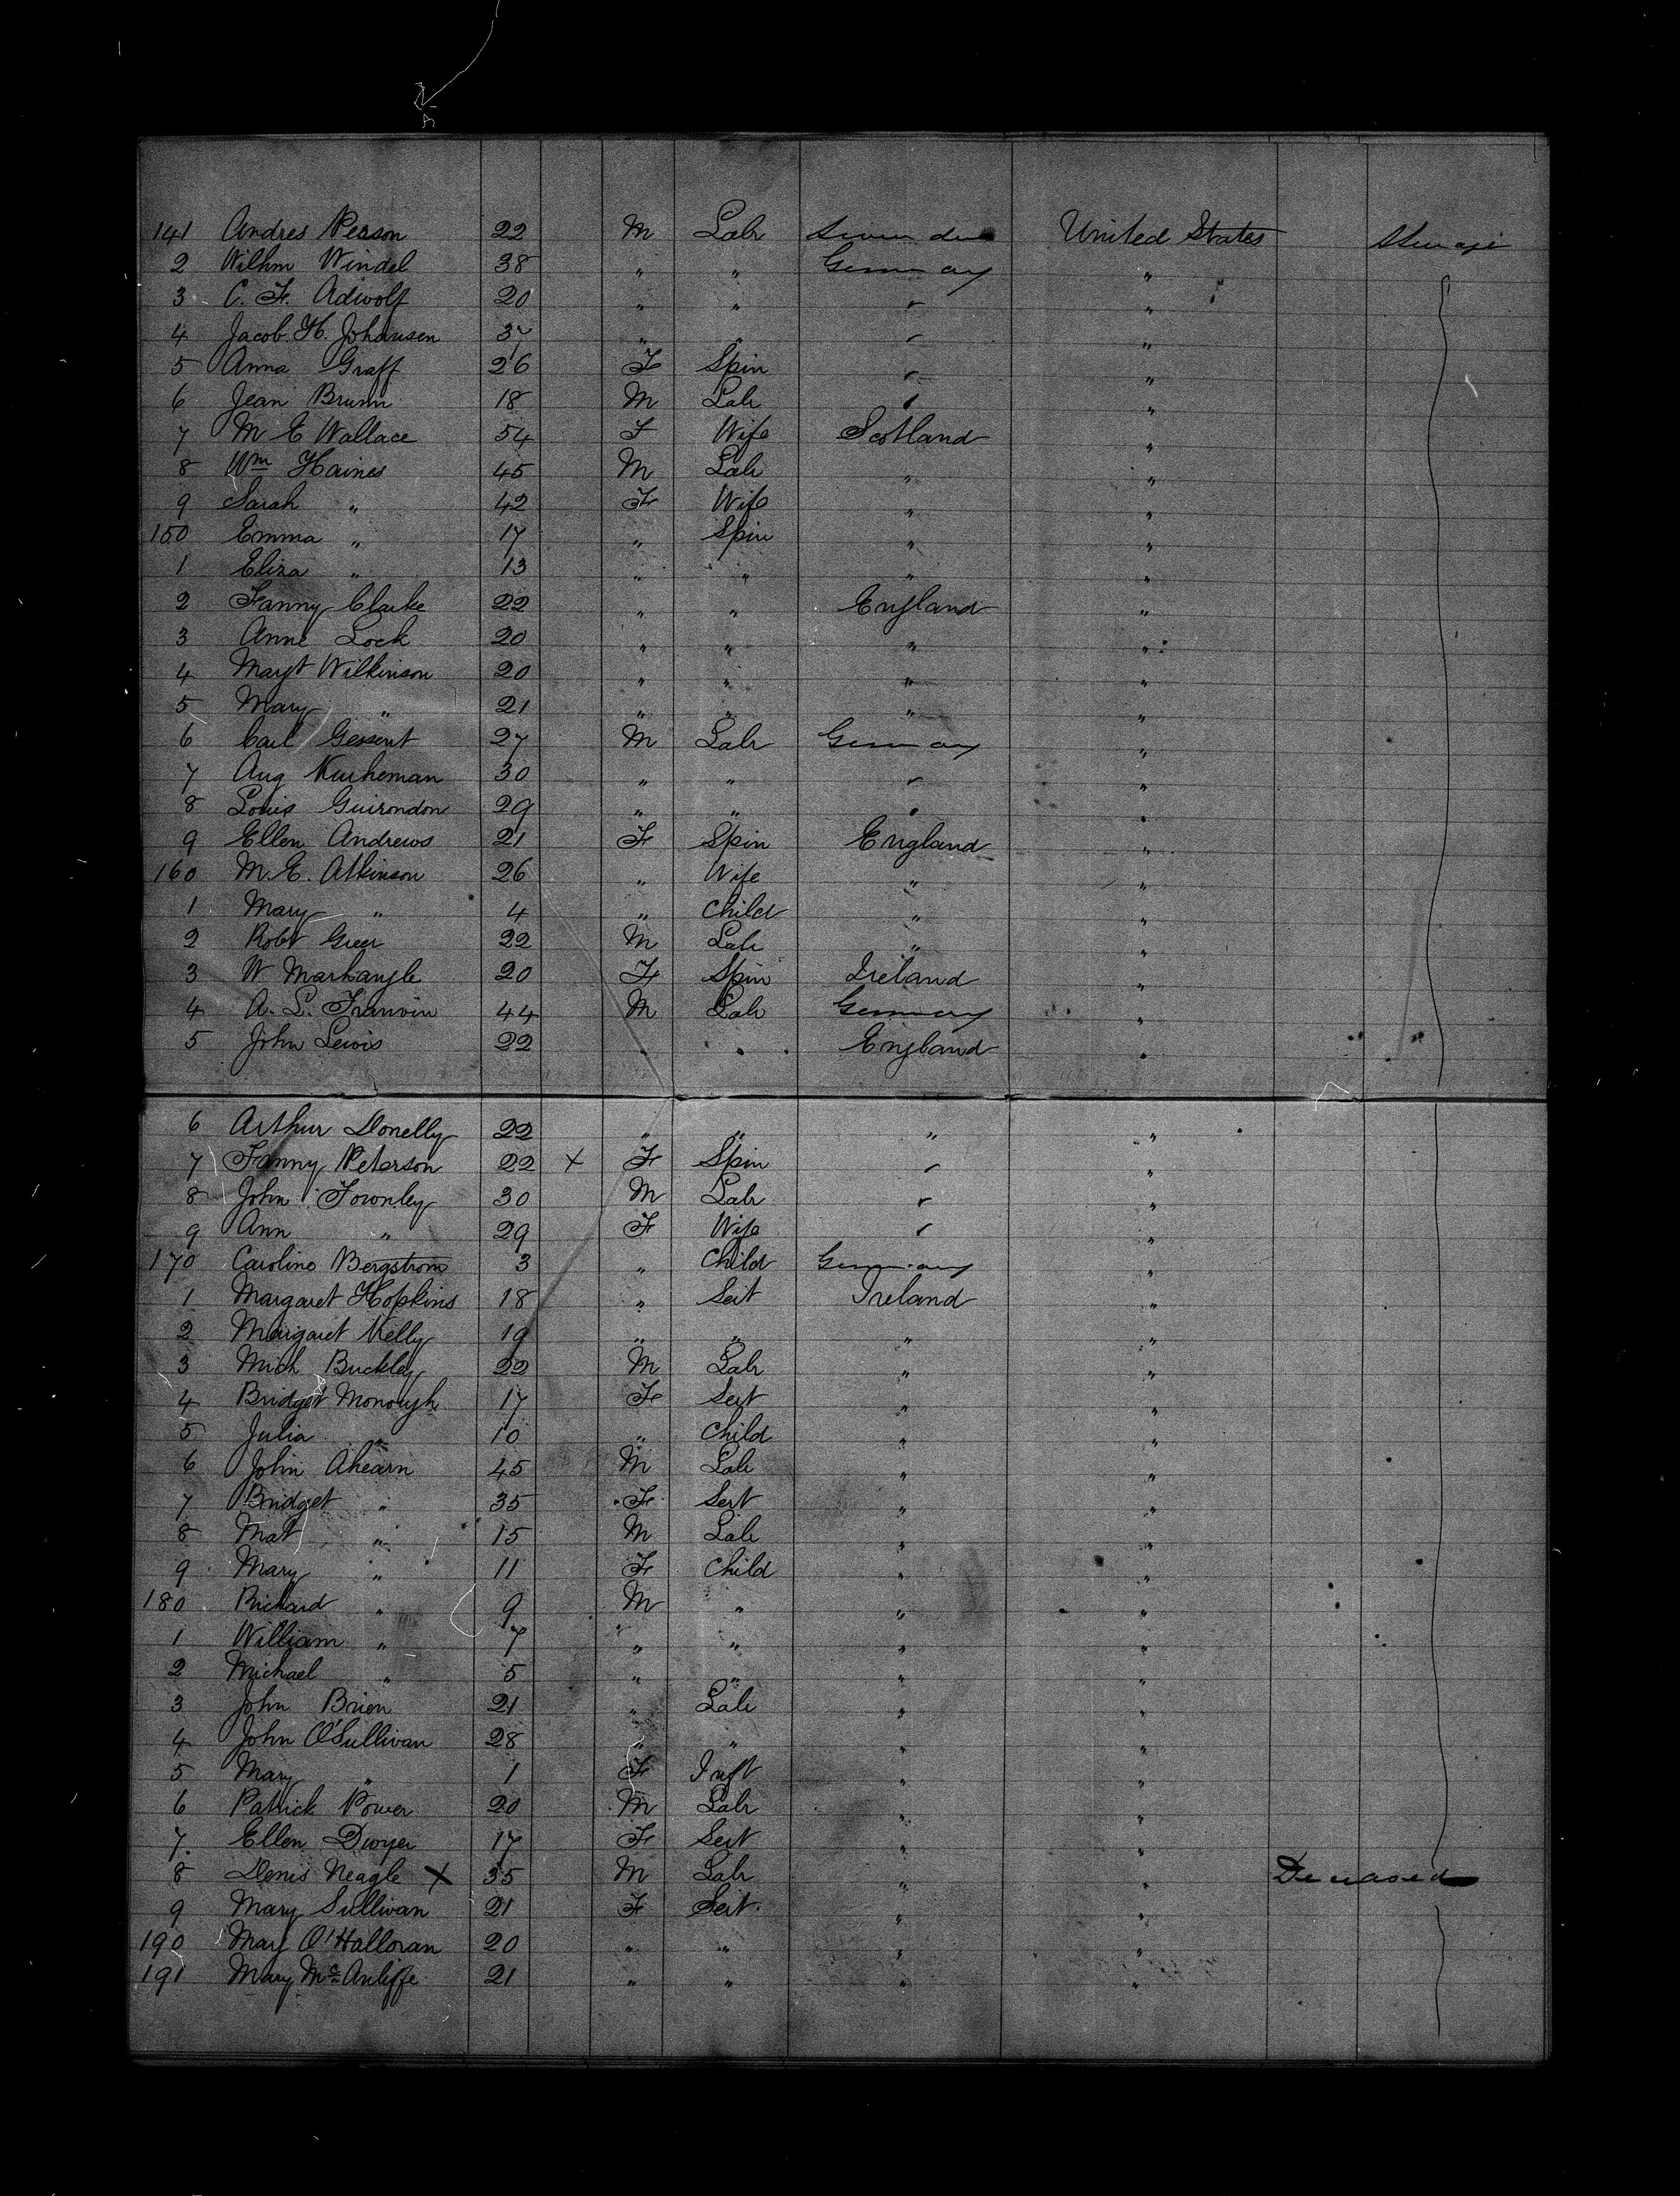 141 Andres Person 22 M Labr United States Steerage
2 Wilhm Windel 38 " " Germany "
3 C. F. Adwolf 20 " " " "
4 Jacob H. Johansen " " " "
5 Anna Graff 26 F Spin " "
6 Jean Brunn 18 M Labr " "
7 M E Wallace 54 F Wife Scotland "
8 Wm Haines 45 M Labr " "
9 Sarah " 42 F Wife " "
150 Emma " 17 " Spin " "
1 Eliza " 13 " " " "
2 Fanny Clarke 22 " " England "
3 Anne Lock 20 " " " "
4 Margt Wilkinson 20 " " " "
5 Mary " 21 " " " "
6 Carl Gessent 27 M Labr Germany "
7 Aug Kurheman 30 " " " "
8 Louis Guirondon 29 " " " "
9 Ellen Andrews 21 F Spin England "
160 M. E. Atkinson 26 " Wife " "
1 Mary " 4 " Child " "
2 Robt Greer 22 M Labr " "
3 W Markangle 20 F Spin Ireland "
4 A. L. Franvin 44 M Labr Germany "
5 John Lewis 22 " " England "
6 Arthur Donelly 22 " " " "
7 Fanny Peterson 22 X F Spin " "
8 John Townley 30 M Labr " "
9 Ann " 29 F Wife " "
170 Caroline Bergstrom 3 " Child Germany "
1 Margaret Hopkins 18 " Sert Ireland "
2 Margaret Kelly 19 " " " "
3 Mich Buckley 22 M Labr " "
4 Bridget Monough 17 F Sert " "
5 Julia " 10 " Child " "
6 John Ahearn 45 M Labr " "
7 Bridget " 35 F Sert " "
8 Mat " 15 M Labr " "
9 Mary " 11 F Child " "
180 Richard " 9 M " " "
1 William " 7 " " " "
2 Michael " 5 " " " "
3 John Brien 21 " Labr " "
4 John O'Sullivan 28 " " " "
5 Mary " 1 F Inft " "
6 Patrick Power 20 M Labr " "
7 Ellen Dwyer 17 F Sert " "
8 Denis Neagle X 35 M Labr " " Deceased
9 Mary Sullivan 21 F Sert " "
190 Mary O'Halloran 20 " " " "
191 Mary McAuliffe 21 " " " "